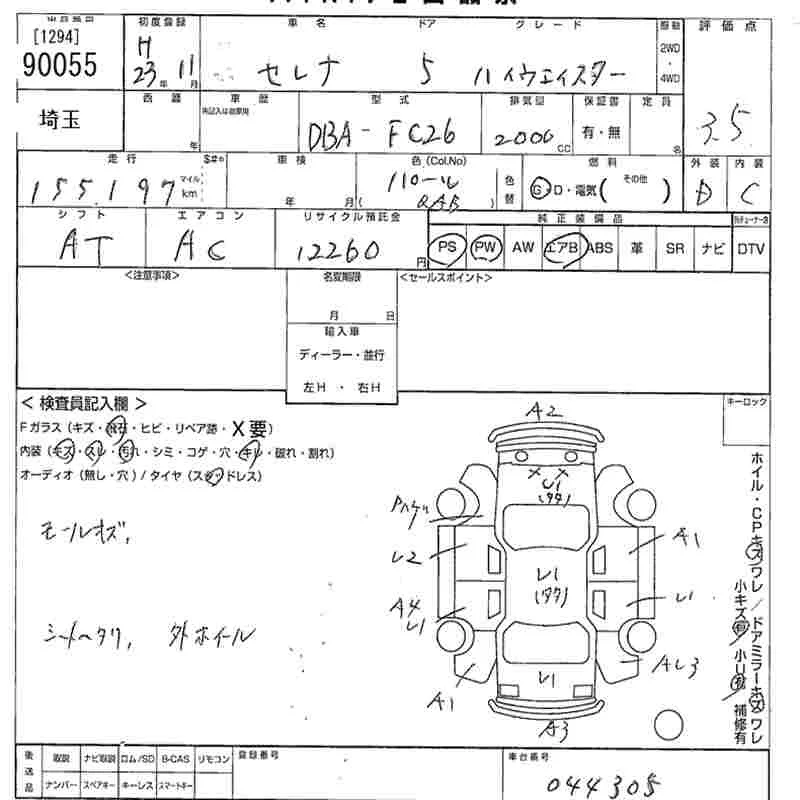 初度登録 車名 ドア グレード 駆動 評価点
[1294]
90055 H 23年 11月 セレナ 5 ハイウエイスター 2WD・4WD 3.5
埼玉 西暦 年 車歴 型式 DBA-FC26 排気量 2000 CC 保証書 有・無 定員 名
走行 155,197 マイル km 車検 年 月 色(Col.No) パール ( QAB ) 色替 燃料 G・D・電気( その他 ) 外装 D 内装 C
シフト AT エアコン AC リサイクル預託金 12260 円 純正装備品
PS PW AW エアB ABS 革 SR ナビ DTV
<注意事項> 名変期限 月 日 <セールスポイント>
輸入車
ディーラー・並行
左H ・ 右H
< 検査員記入欄 > キーロック
Fガラス(キズ・飛石・ヒビ・リペア跡・X要)
内装(キズ・スレ・汚れ・シミ・コゲ・穴・キレ・破れ・割れ)
オーディオ(無し・穴)/タイヤ(スタッドレス)
モールキズ,
シートヘタリ, 外ホイール
A2
U1
U2
A1
U1
A4
U1
U1
A1
U1
AU3
A3
ホイル・CPキズワレ/ドアミラーキズワレ
小キズ有 小U有 補修有
後送品 取説 ナビ取説 ロム/SD B-CAS リモコン 登録番号 車台番号
ナンバー スペアキー キーレス スマートキー 044305